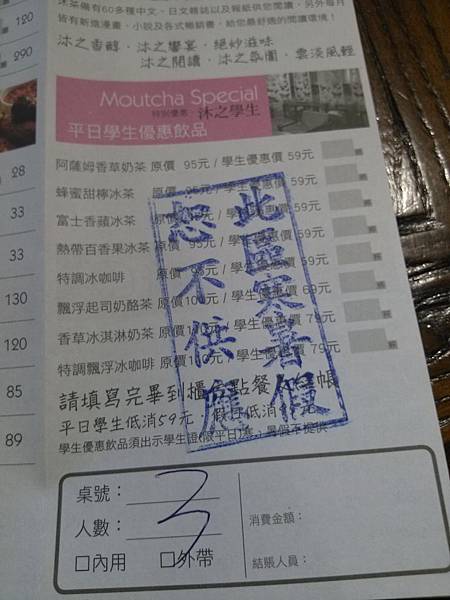 沐茶備有60多種中文、日文雜誌以及報紙供您閱讀，另外每月
皆有新進漫畫、小說及各式暢銷書，給您最舒適的閱讀環境！
沐之香醇．沐之饗宴，絕妙滋味
沐之閱讀．沐之氛圍．雲淡風輕
Moutcha Special
特別優惠 沐之學生
平日學生優惠飲品
阿薩姆香草奶茶 原價 95元 / 學生優惠價 59元
蜂蜜甜檸冰茶 原價 95元 / 學生優惠價 59元
富士香蘋冰茶 原價 95元 / 學生優惠價 59元
熱帶百香果冰茶 原價 95元 / 學生優惠價 59元
特調冰咖啡 原價 95元 / 學生優惠價 59元
飄浮起司奶酪茶 原價 元 / 學生優惠價 69元
香草冰淇淋奶茶 原價 元 / 學生優惠價 79元
特調飄浮冰咖啡 原價 元 / 學生優惠價 79元
此區寒暑假
恕不供應
請填寫完畢到櫃台點餐 帳
平日學生低消59元 假日低消
學生優惠飲品須出示學生證(限平日) 暑假不提供
桌號：
3
人數：
□內用 □外帶
消費金額：
結賬人員：
120
290
28
33
33
130
120
85
89